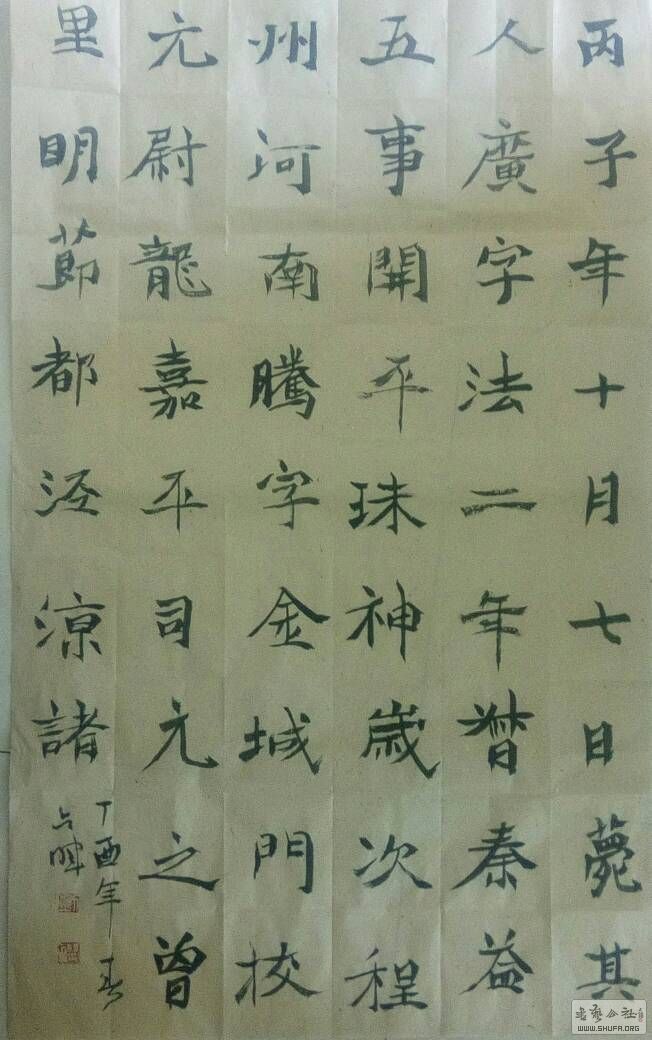 丙子年十月七日薨其
人廣字法二年秦益
五事開平珠神歲次程
州河南騰字金城門校
元尉龍嘉平司元之曾
里明節都涇涼諸
丁酉年春
WWW.SHUFA.ORG